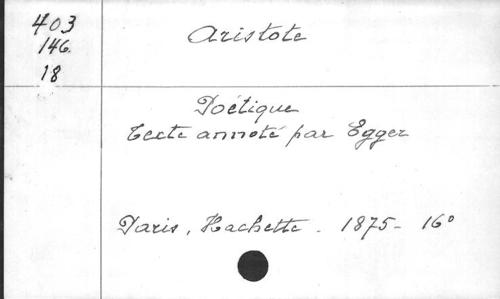 403
146
18
Aristote
Poétique
Texte annoté par Egger
Paris, Hachette. 1875- 16°